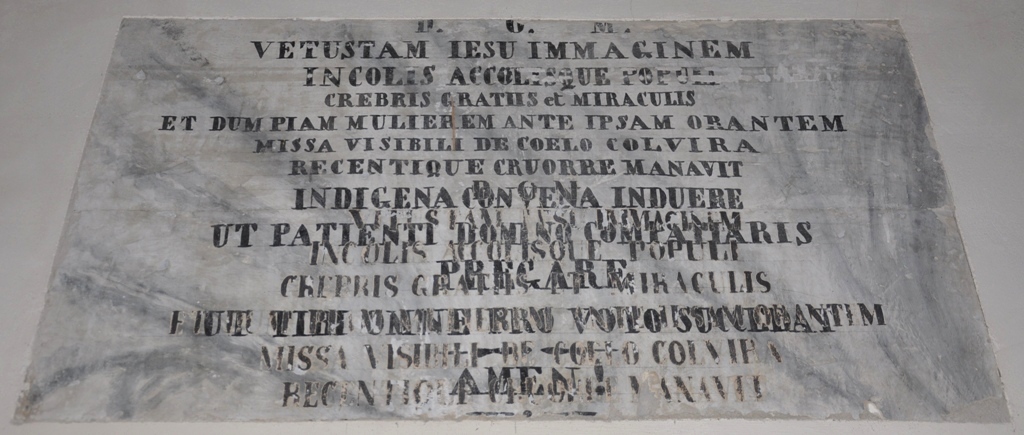 D. O. M.
VETUSTAM IESU IMMAGINEM
INCOLIS ACCOLISQUE POPULI
CREBRIS GRATIIS et MIRACULIS
ET DUM PIAM MULIEREM ANTE IPSAM ORANTEM
MISSA VISIBILI DE COELO COLVIRA
RECENTIQUE CRUORRE MANAVIT
INDIGENA CONVENA INDUERE
D. O. M.
VETUSTAM IESU IMMAGINEM
UT PATIENTI DOMINO
INCOLIS ACCOLISQUE POPULI
PREGARE
CREBRIS GRATIIS MIRACULIS
VOTO SUCCEDANT
MISSA VISIBILI DE COELO COLVIRA
AMEN!
RECENTIQUE MANAVIT